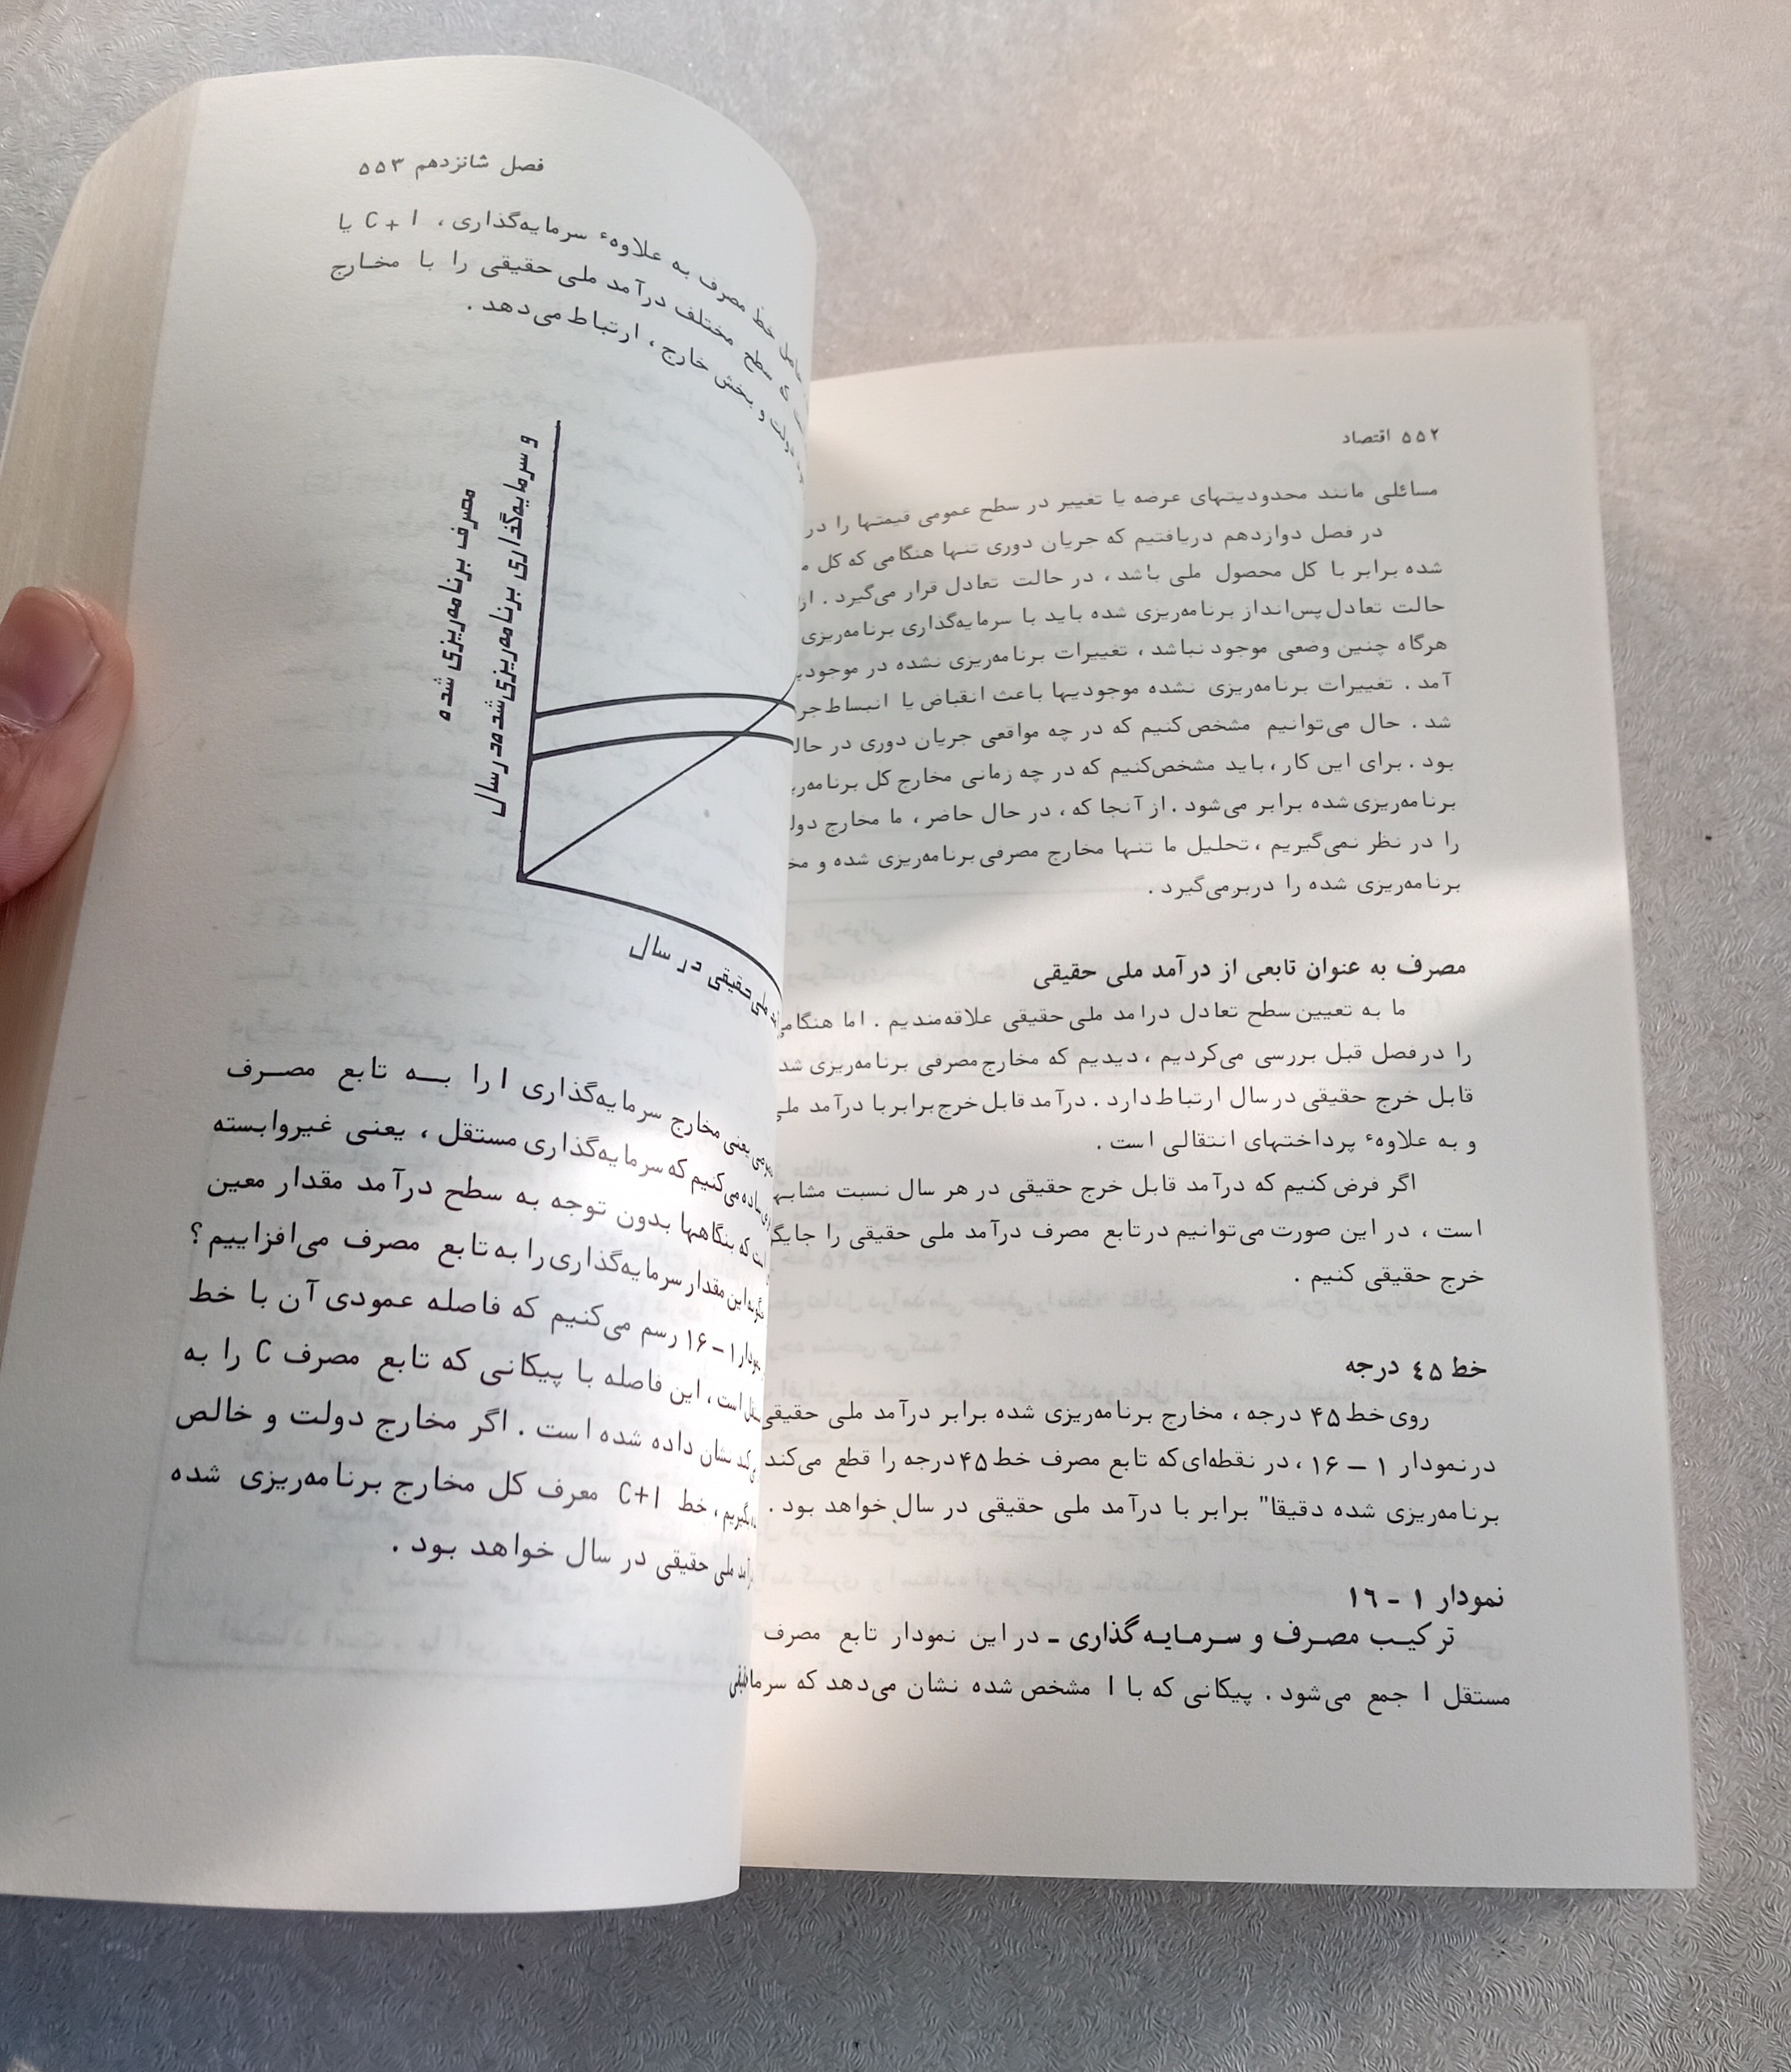 ۵۵۲ اقتصاد
مسائلی مانند محدودیتهای عرضه یا تغییر در سطح عمومی قیمتها را در
در فصل دوازدهم دریافتیم که جریان دوری تنها هنگامی که کل
شده برابر با کل محصول ملی باشد، در حالت تعادل قرار می‌گیرد. از
حالت تعادل پس‌انداز برنامه‌ریزی شده باید با سرمایه‌گذاری برنامه‌ریزی
هرگاه چنین وضعی موجود نباشد، تغییرات برنامه‌ریزی نشده در
آمد. تغییرات برنامه‌ریزی نشده موجودیها باعث انقباض یا انبساط
شد. حال می‌توانیم مشخص کنیم که در چه مواقعی جریان دوری در
بود. برای این کار، باید مشخص کنیم که در چه زمانی مخارج کل
برنامه‌ریزی شده برابر می‌شود. از آنجا که، در حال حاضر، ما مخارج
را در نظر نمی‌گیریم، تحلیل ما تنها مخارج مصرفی برنامه‌ریزی شده و
برنامه‌ریزی شده را دربرمی‌گیرد.
مصرف به عنوان تابعی از درآمد ملی حقیقی
ما به تعیین سطح تعادل درامد ملی حقیقی علاقه‌مندیم. اما
را در فصل قبل بررسی می‌کردیم، دیدیم که مخارج مصرفی برنامه‌ریزی
قابل خرج حقیقی در سال ارتباط دارد. درآمد قابل خرج برابر با درآمد
و به علاوهٔ پرداختهای انتقالی است.
اگر فرض کنیم که درآمد قابل خرج حقیقی در هر سال نسبت
است، در این صورت می‌توانیم در تابع مصرف درآمد ملی حقیقی را
خرج حقیقی کنیم.
خط ۴۵ درجه
روی خط ۴۵ درجه، مخارج برنامه‌ریزی شده برابر درآمد ملی حقیقی
در نمودار ۱ – ۱۶، در نقطه‌ای که تابع مصرف خط ۴۵ درجه را قطع می‌کند
برنامه‌ریزی شده دقیقا" برابر با درآمد ملی حقیقی در سال خواهد بود.
نمودار ۱ - ۱۶
ترکیب مصرف و سرمایه گذاری - در این نمودار تابع مصرف
مستقل I جمع می‌شود. پیکانی که با I مشخص شده نشان می‌دهد که
فصل شانزدهم ۵۵۳
خط مصرف به علاوهٔ سرمایه‌گذاری، C + I یا
سطح مختلف درآمد ملی حقیقی را با مخارج
و بخش خارج، ارتباط می‌دهد.
مصرف برنامه‌ریزی شده
و سرمایه‌گذاری برنامه‌ریزی شده در سال
ملی حقیقی در سال
یعنی مخارج سرمایه‌گذاری I را به تابع مصرف
می‌کنیم که سرمایه‌گذاری مستقل، یعنی غیروابسته
که بنگاهها بدون توجه به سطح درآمد مقدار معین
این مقدار سرمایه‌گذاری را به تابع مصرف می‌افزاییم؟
۱ – ۱۶ رسم می‌کنیم که فاصله عمودی آن با خط
است، این فاصله با پیکانی که تابع مصرف C را به
نشان داده شده است. اگر مخارج دولت و خالص
خط C+I معرف کل مخارج برنامه‌ریزی شده
ملی حقیقی در سال خواهد بود.